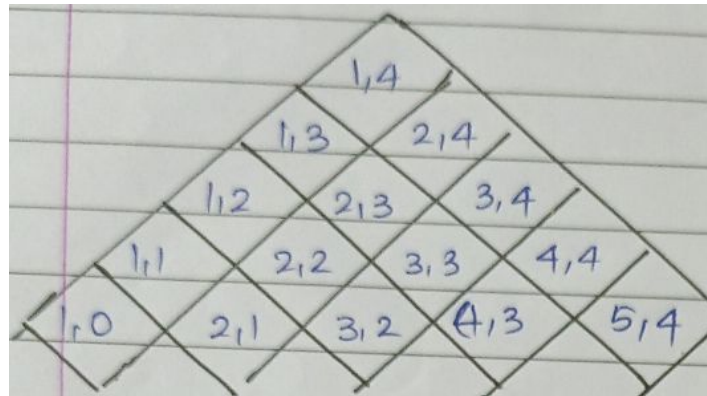 1,4
1,3 2,4
1,2 2,3 3,4
1,1 2,2 3,3 4,4
1,0 2,1 3,2 4,3 5,4